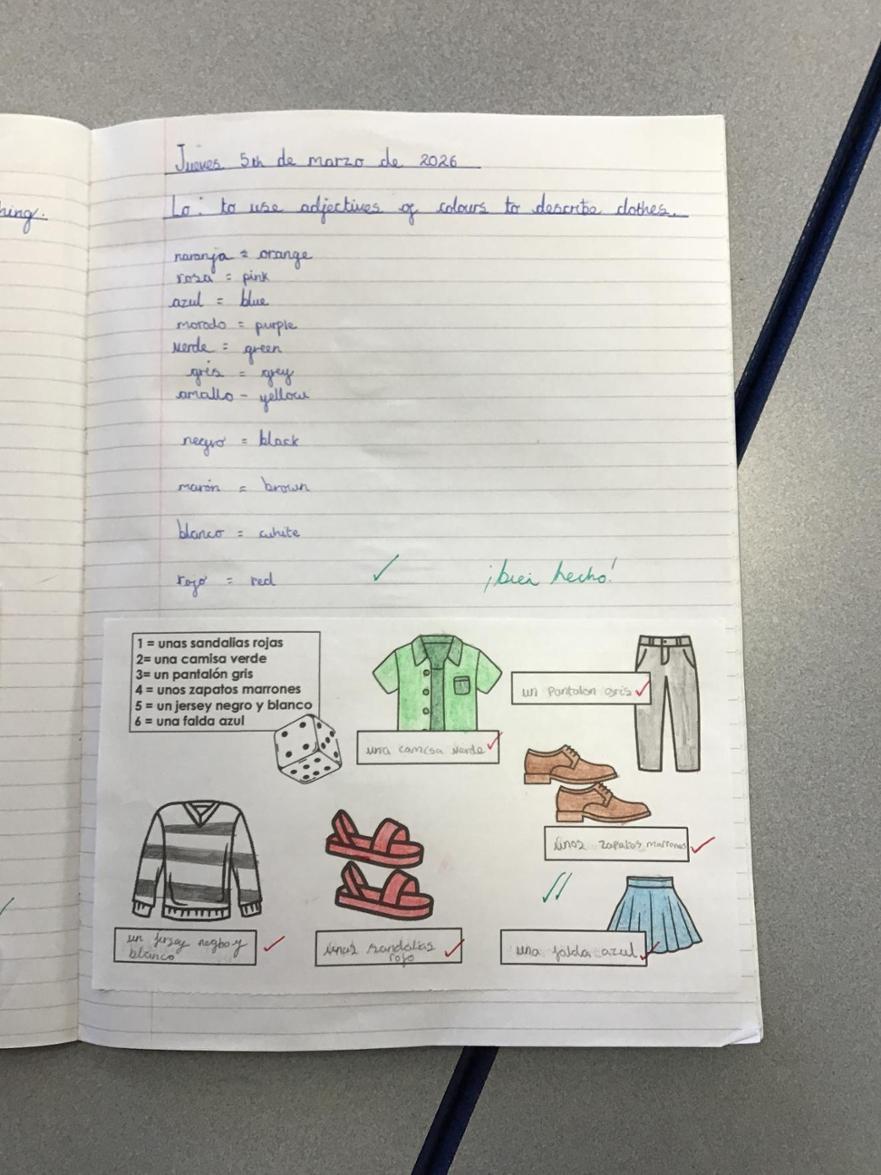 hing.
Jueves 5th de marzo de 2026
Lo: to use adjectives of colours to describe clothes.
naranja = orange
rosa = pink
azul = blue
morado = purple
verde = green
gris = grey
amallo - yellow
negro = black
marón = brown
blanco = white
rojo = red
¡bien hecho!
1 = unas sandalias rojas
2= una camisa verde
3= un pantalón gris
4 = unos zapatos marrones
5 = un jersey negro y blanco
6 = una falda azul
un Pantalon gris
una camisa verde
unos zapatos marrones
un jersey negro y
blanco
unas sandalias
rojo
una falda azul